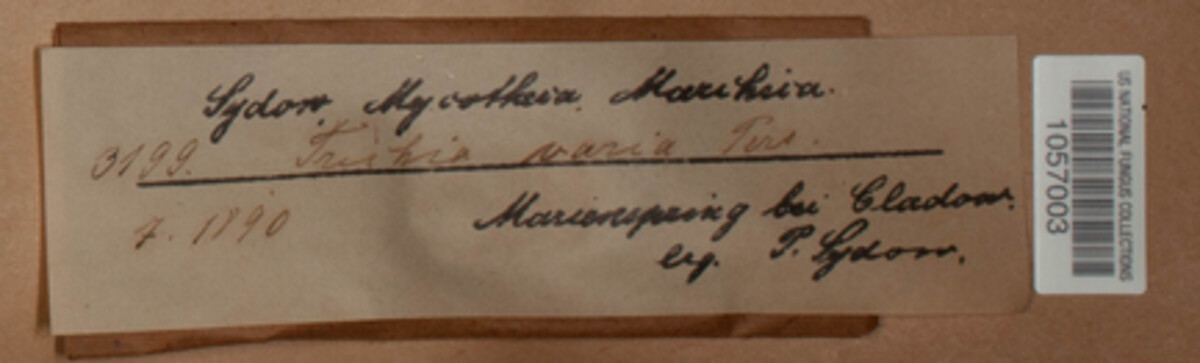 Sydow, Mycotheca Marchica.
3199. Trichia varia Pers.
7. 1890
Marienspring bei Cladow.
leg. P. Sydow.
US NATIONAL FUNGUS COLLECTIONS
1057003